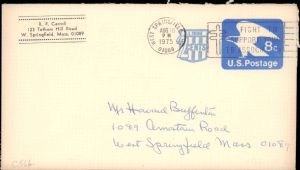 E. F. Carroll
123 Tatham Hill Road
W. Springfield, Mass. 01089
WEST SPRINGFIELD
AUG 18
PM
1975
01089
CENTS
FIGHT
8c
U.S. Postage
Ms Howard Buffenton
1089 Amostown Road
West Springfield Mass 01089